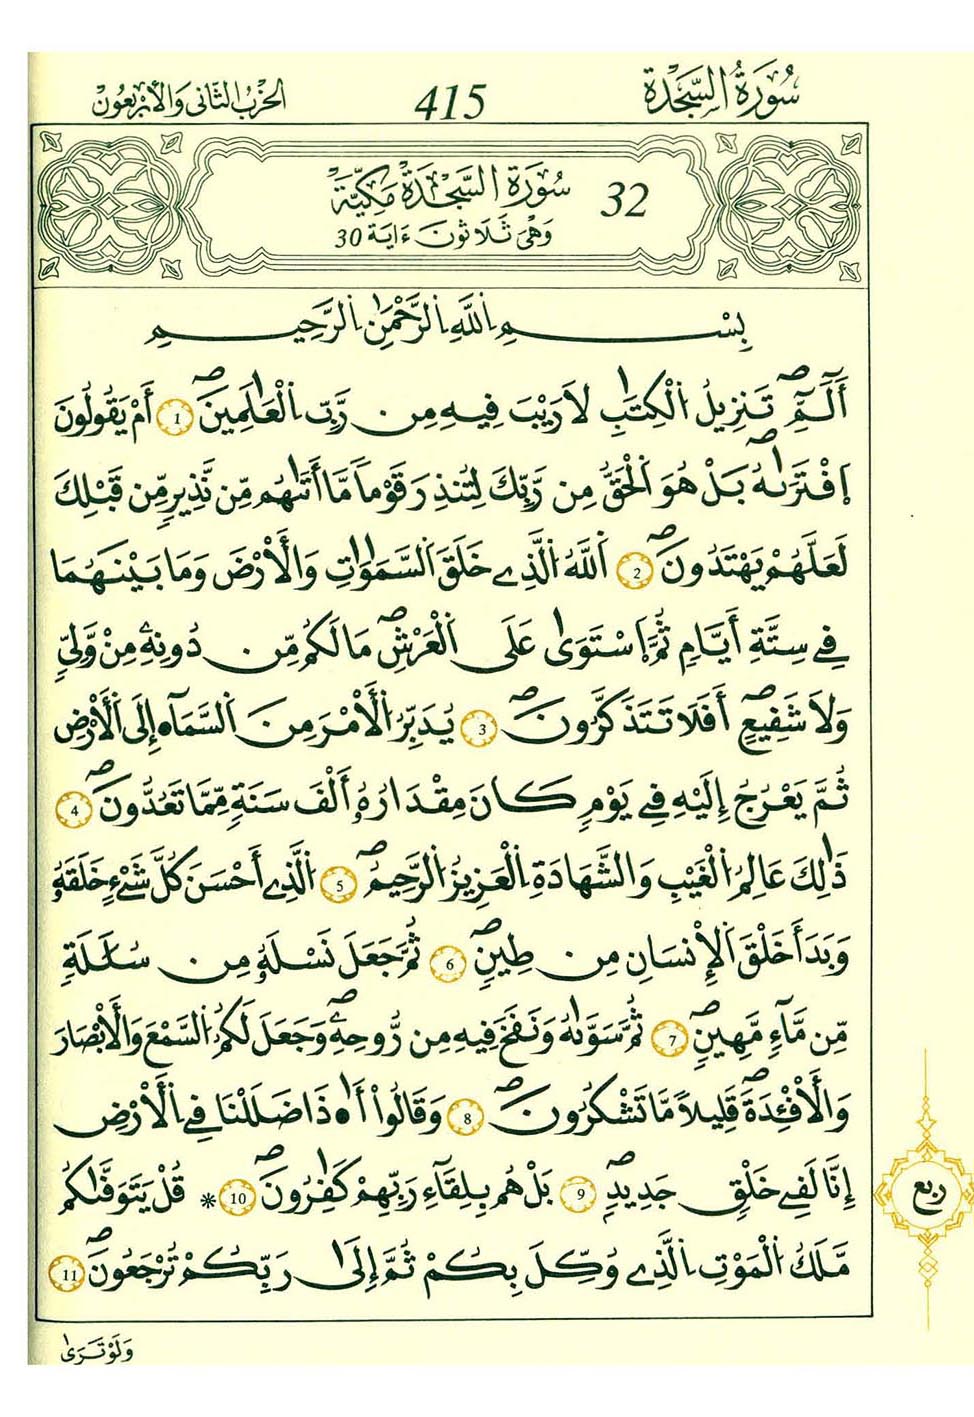 سُورَةُ السَّجْدَةِ
415
الحِزْبُ الثَّانِي وَالأَرْبَعُونَ
32 سُورَةُ السَّجْدَةِ مَكِّيَّةٌ
وَهْيَ ثَلَاثُونَ ءَايَة 30
بِسْمِ اِ۬للَّهِ اِ۬لرَّحْمَٰنِ اِ۬لرَّحِيمِ
أَلَٓمِّٓۖ تَنزِيلُ اُ۬لْكِتَٰبِ لَا رَيْبَ فِيهِ مِن رَّبِّ اِ۬لْعَٰلَمِينَۖ 1 أَمْ يَقُولُونَ
اَ۪فْتَر۪ىٰهُۖ بَلْ هُوَ اَ۬لْحَقُّ مِن رَّبِّكَ لِتُنذِرَ قَوْماٗ مَّآ أَت۪ىٰهُم مِّن نَّذِيرٖ مِّن قَبْلِكَ
لَعَلَّهُمْ يَهْتَدُونَۖ 2 اَ۬للَّهُ اُ۬لَّذِے خَلَقَ اَ۬لسَّمَٰوَٰتِ وَالْأَرْضَ وَمَا بَيْنَهُمَا
فِے سِتَّةِ أَيَّامٖ ثُمَّ اَ۪سْتَو۪ىٰ عَلَى اَ۬لْعَرْشِۖ مَا لَكُم مِّن دُونِهِۦ مِنْ وَّلِيّٖ
وَلَا شَفِيعٍۖ أَفَلَا تَتَذَكَّرُونَۖ 3 يُدَبِّرُ اُ۬لْأَمْرَ مِنَ اَ۬لسَّمَآءِ اِ۪لَى اَ۬لْأَرْضِ
ثُمَّ يَعْرُجُ إِلَيْهِ فِے يَوْمٖ كَانَ مِقْدَارُهُۥٓ أَلْفَ سَنَةٖ مِّمَّا تَعُدُّونَۖ 4
ذَٰلِكَ عَالِمُ اُ۬لْغَيْبِ وَالشَّهَادَةِ اِ۬لْعَزِيزُ اُ۬لرَّحِيمُۖ 5 اُ۬لَّذِے أَحْسَنَ كُلَّ شَےْءٍ خَلَقَهُۥ
وَبَدَأَ خَلْقَ اَ۬لْإِنسَانِ مِن طِينٖۖ 6 ثُمَّ جَعَلَ نَسْلَهُۥ مِن سُلَٰلَةٖ
مِّن مَّآءٖ مَّهِينٖۖ 7 ثُمَّ سَوّ۪ىٰهُ وَنَفَخَ فِيهِ مِن رُّوحِهِۦۖ وَجَعَلَ لَكُمُ اُ۬لسَّمْعَ وَالْأَبْصَارَ
وَالْأَفْـِٕدَةَۖ قَلِيلاٗ مَّا تَشْكُرُونَۖ 8 وَقَالُوٓاْ أَ۟ذَا ضَلَلْنَا فِے اِ۬لْأَرْضِ
إِنَّا لَفِے خَلْقٖ جَدِيدٖۖ 9 بَلْ هُم بِلِقَآءِ رَبِّهِمْ كَٰفِرُونَۖ 10 * قُلْ يَتَوَفّ۪ىٰكُم
مَّلَكُ اُ۬لْمَوْتِ اِ۬لَّذِے وُكِّلَ بِكُمْ ثُمَّ إِلَىٰ رَبِّكُمْ تُرْجَعُونَۖ 11
ربع
وَلَوْ تَر۪ىٰٓ